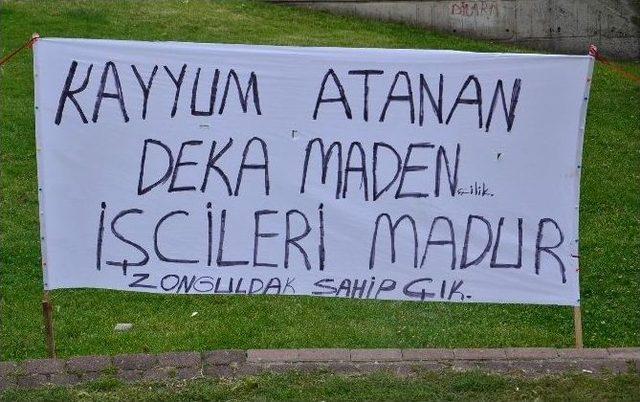 DİLARA
KAYYUM ATANAN
DEKA MADENçilik.
İŞCİLERİ MADUR
ZONGULDAK SAHİP ÇIK.